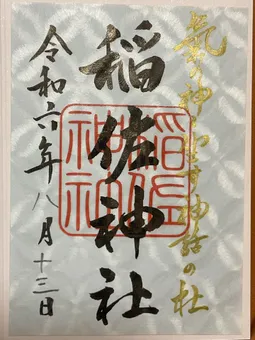 神話の杜
稲佐神社
稲佐
神社
令和六年八月十三日